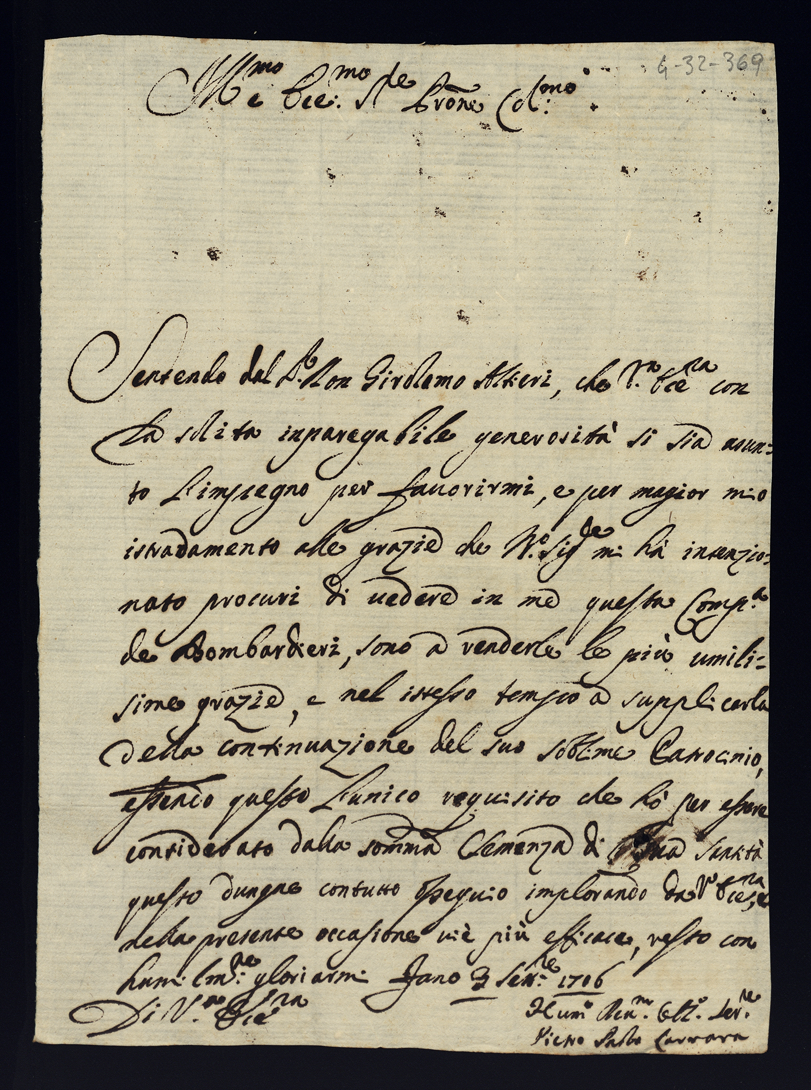 G-32-369
Ill.mo e Ecc.mo S.re Prōne Col.mo
Sentendo dal S.r Don Girolamo Altieri, che V.ra Ecc.za con
la solita inparegabile generosità si sia asun=
to l'impegno per fauorirmi, e per magior mio
istradamento alle grazie che N.o Sig.re mi hà intenzio=
nato procuri di uedere in me questa Comp.a
de Bombardieri, sono a renderle le più umili=
sime grazie, e nel istesso tempo a supplicarla
della continuazione del suo soblime Patrocinio,
essendo questo l'unico requisito che hò per essere
considerato dalla somma Clemenza di Sua Santità
questo dunque contutto ossequio implorando da V.ra Ecc.za, e
nella presente occasione uiè più efficace, resto con
humilm.te gloriarmi Fano 3 Sett.re 1706
Di V.ra Ecc.za
Hum.o Obl.o Ser.re
Pietro Paolo Carrara